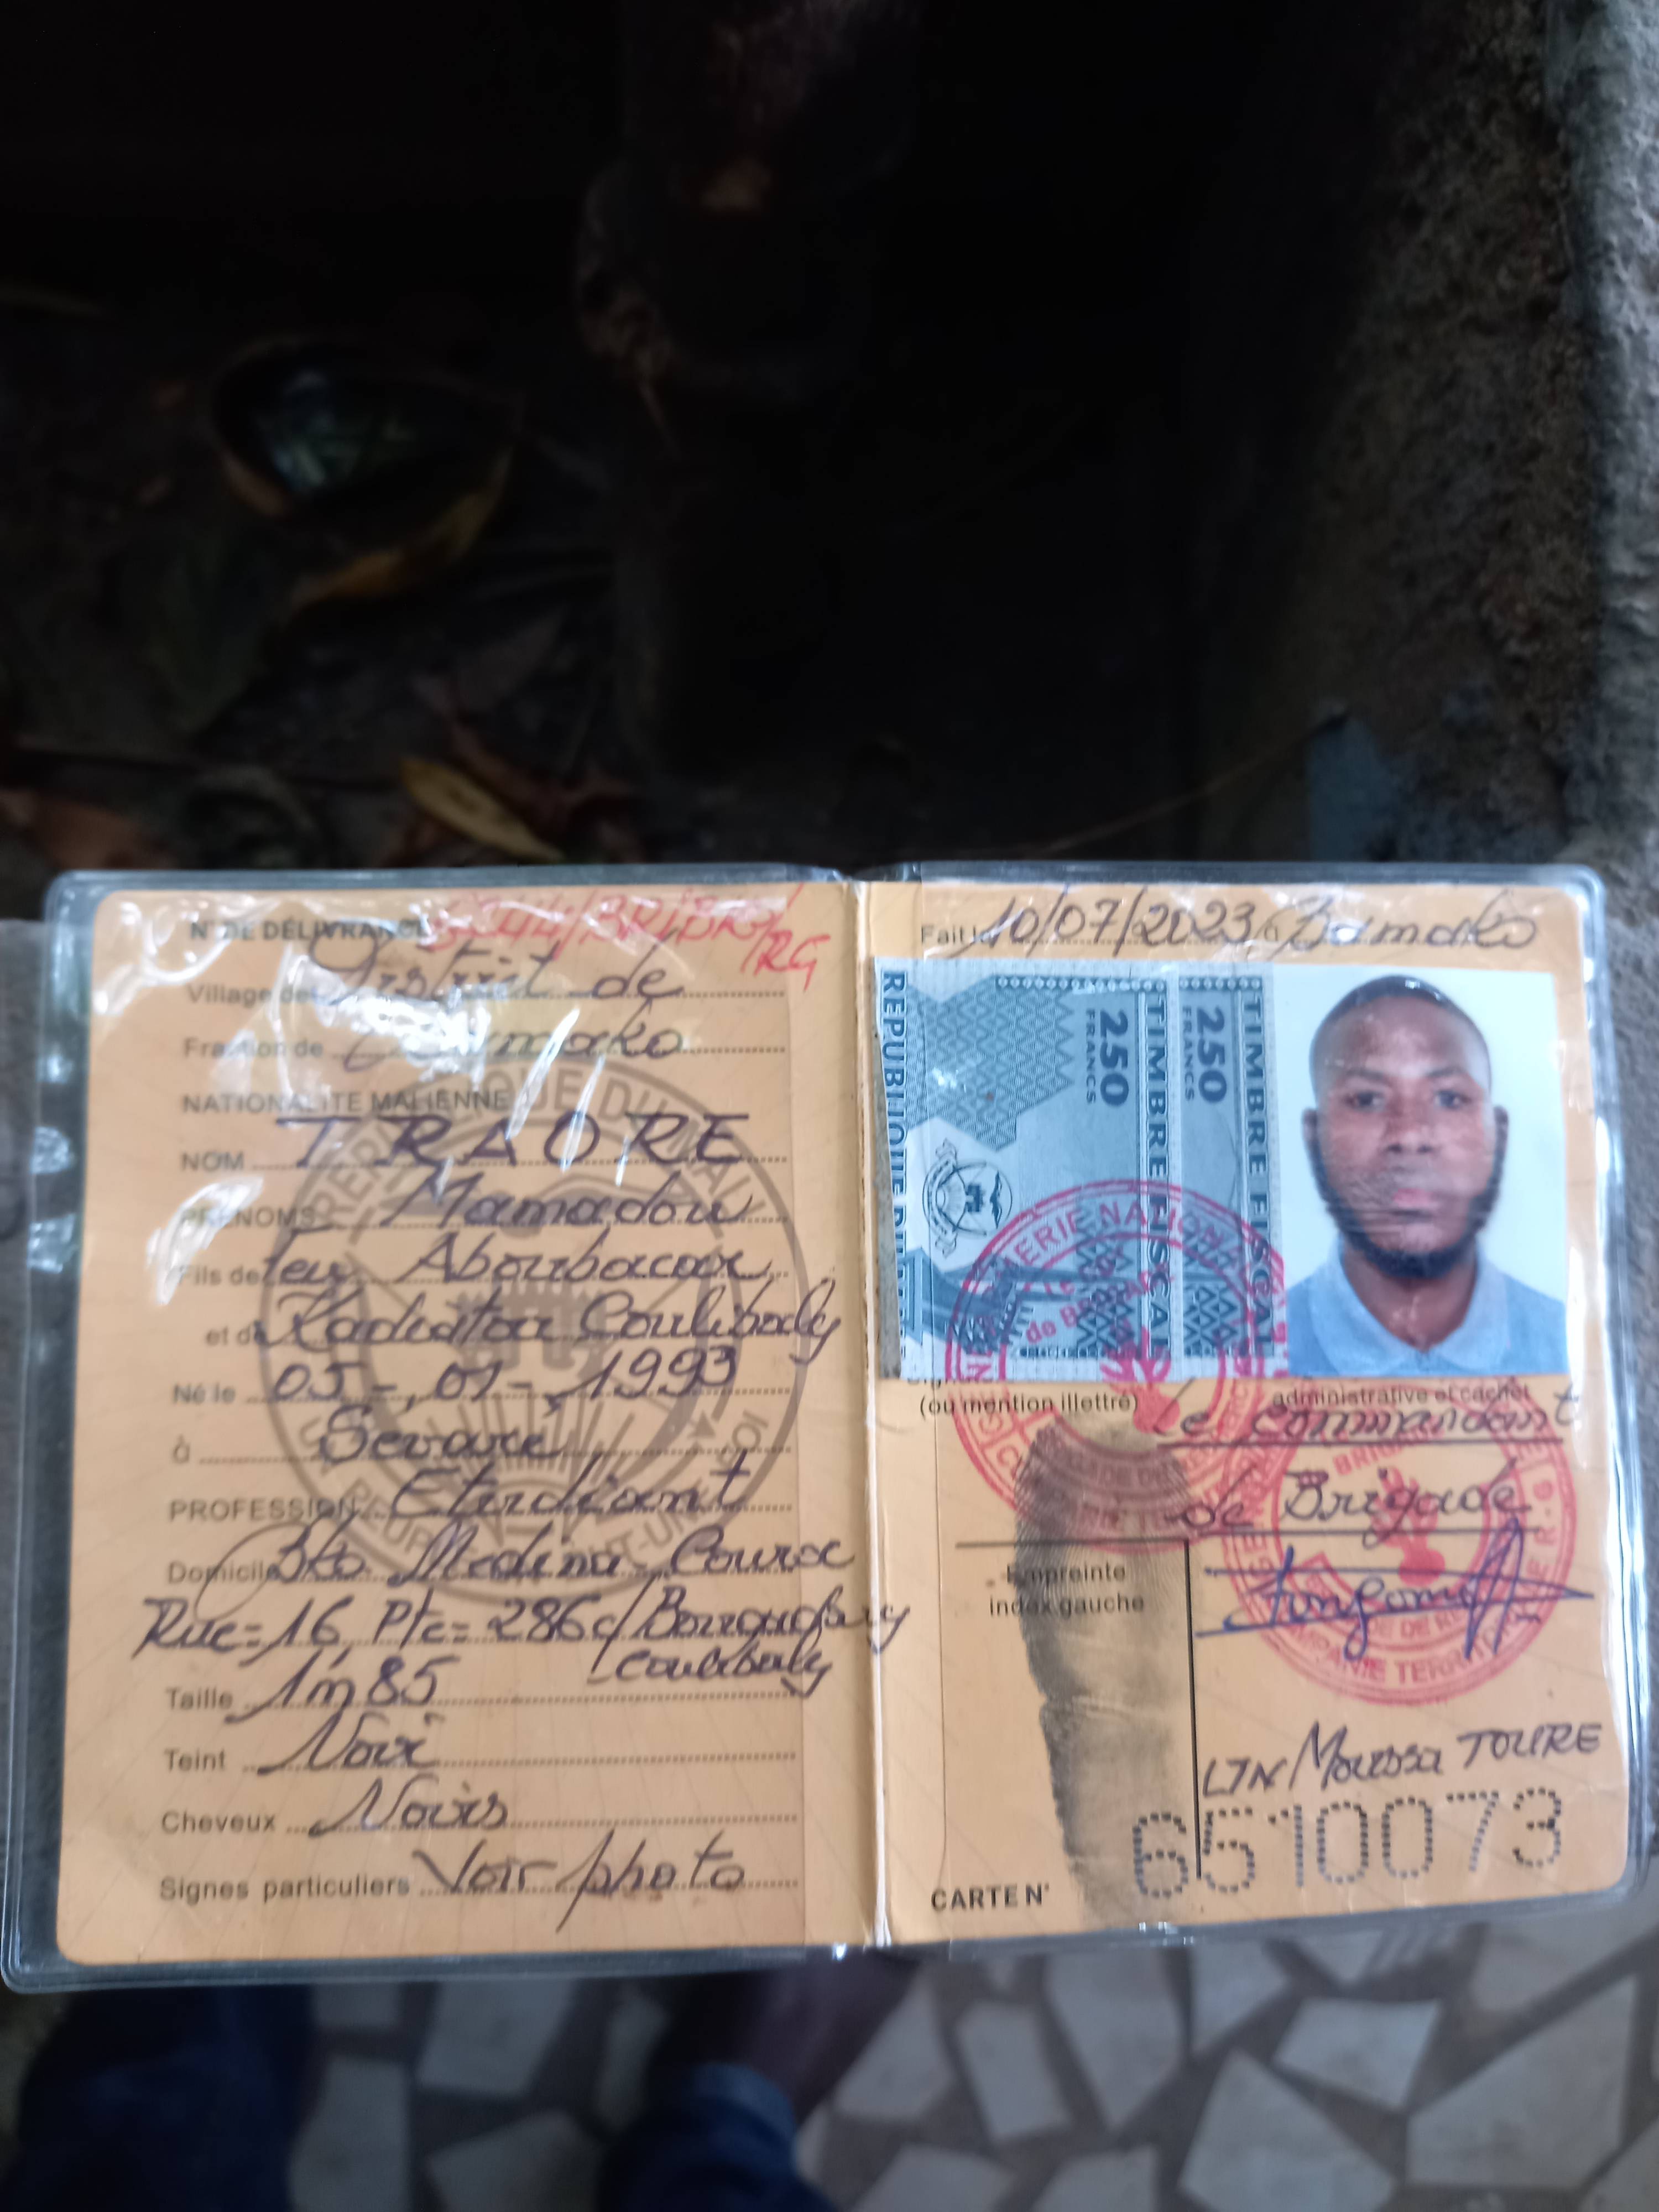 N° DE DÉLIVRANCE
Village de District de
Fraction de Bamako
NATIONALITÉ MALIENNE
NOM TRAORE
PRÉNOMS Mamadou
Fils de feu Aboubacar
et de Kadiatou Coulibaly
Né le 05-01-1993
à Sevaré
PROFESSION Etudiant
Domicile Bko Medina-Coura
Rue=16, Pte=286 c/
Coulibaly
Taille 1m85
Teint Noir
Cheveux Noirs
Signes particuliers Voir photo
Fait le 10/07/2023 à Bamako
REPUBLIQUE DU
250 FRANCS
TIMBRE FISCAL
250 FRANCS
TIMBRE FISCAL
(ou mention illettré)
administrative et cachet
Le Commandant
de Brigade
Empreinte
index gauche
LTN Moussa TOURE
CARTE N° 6510073